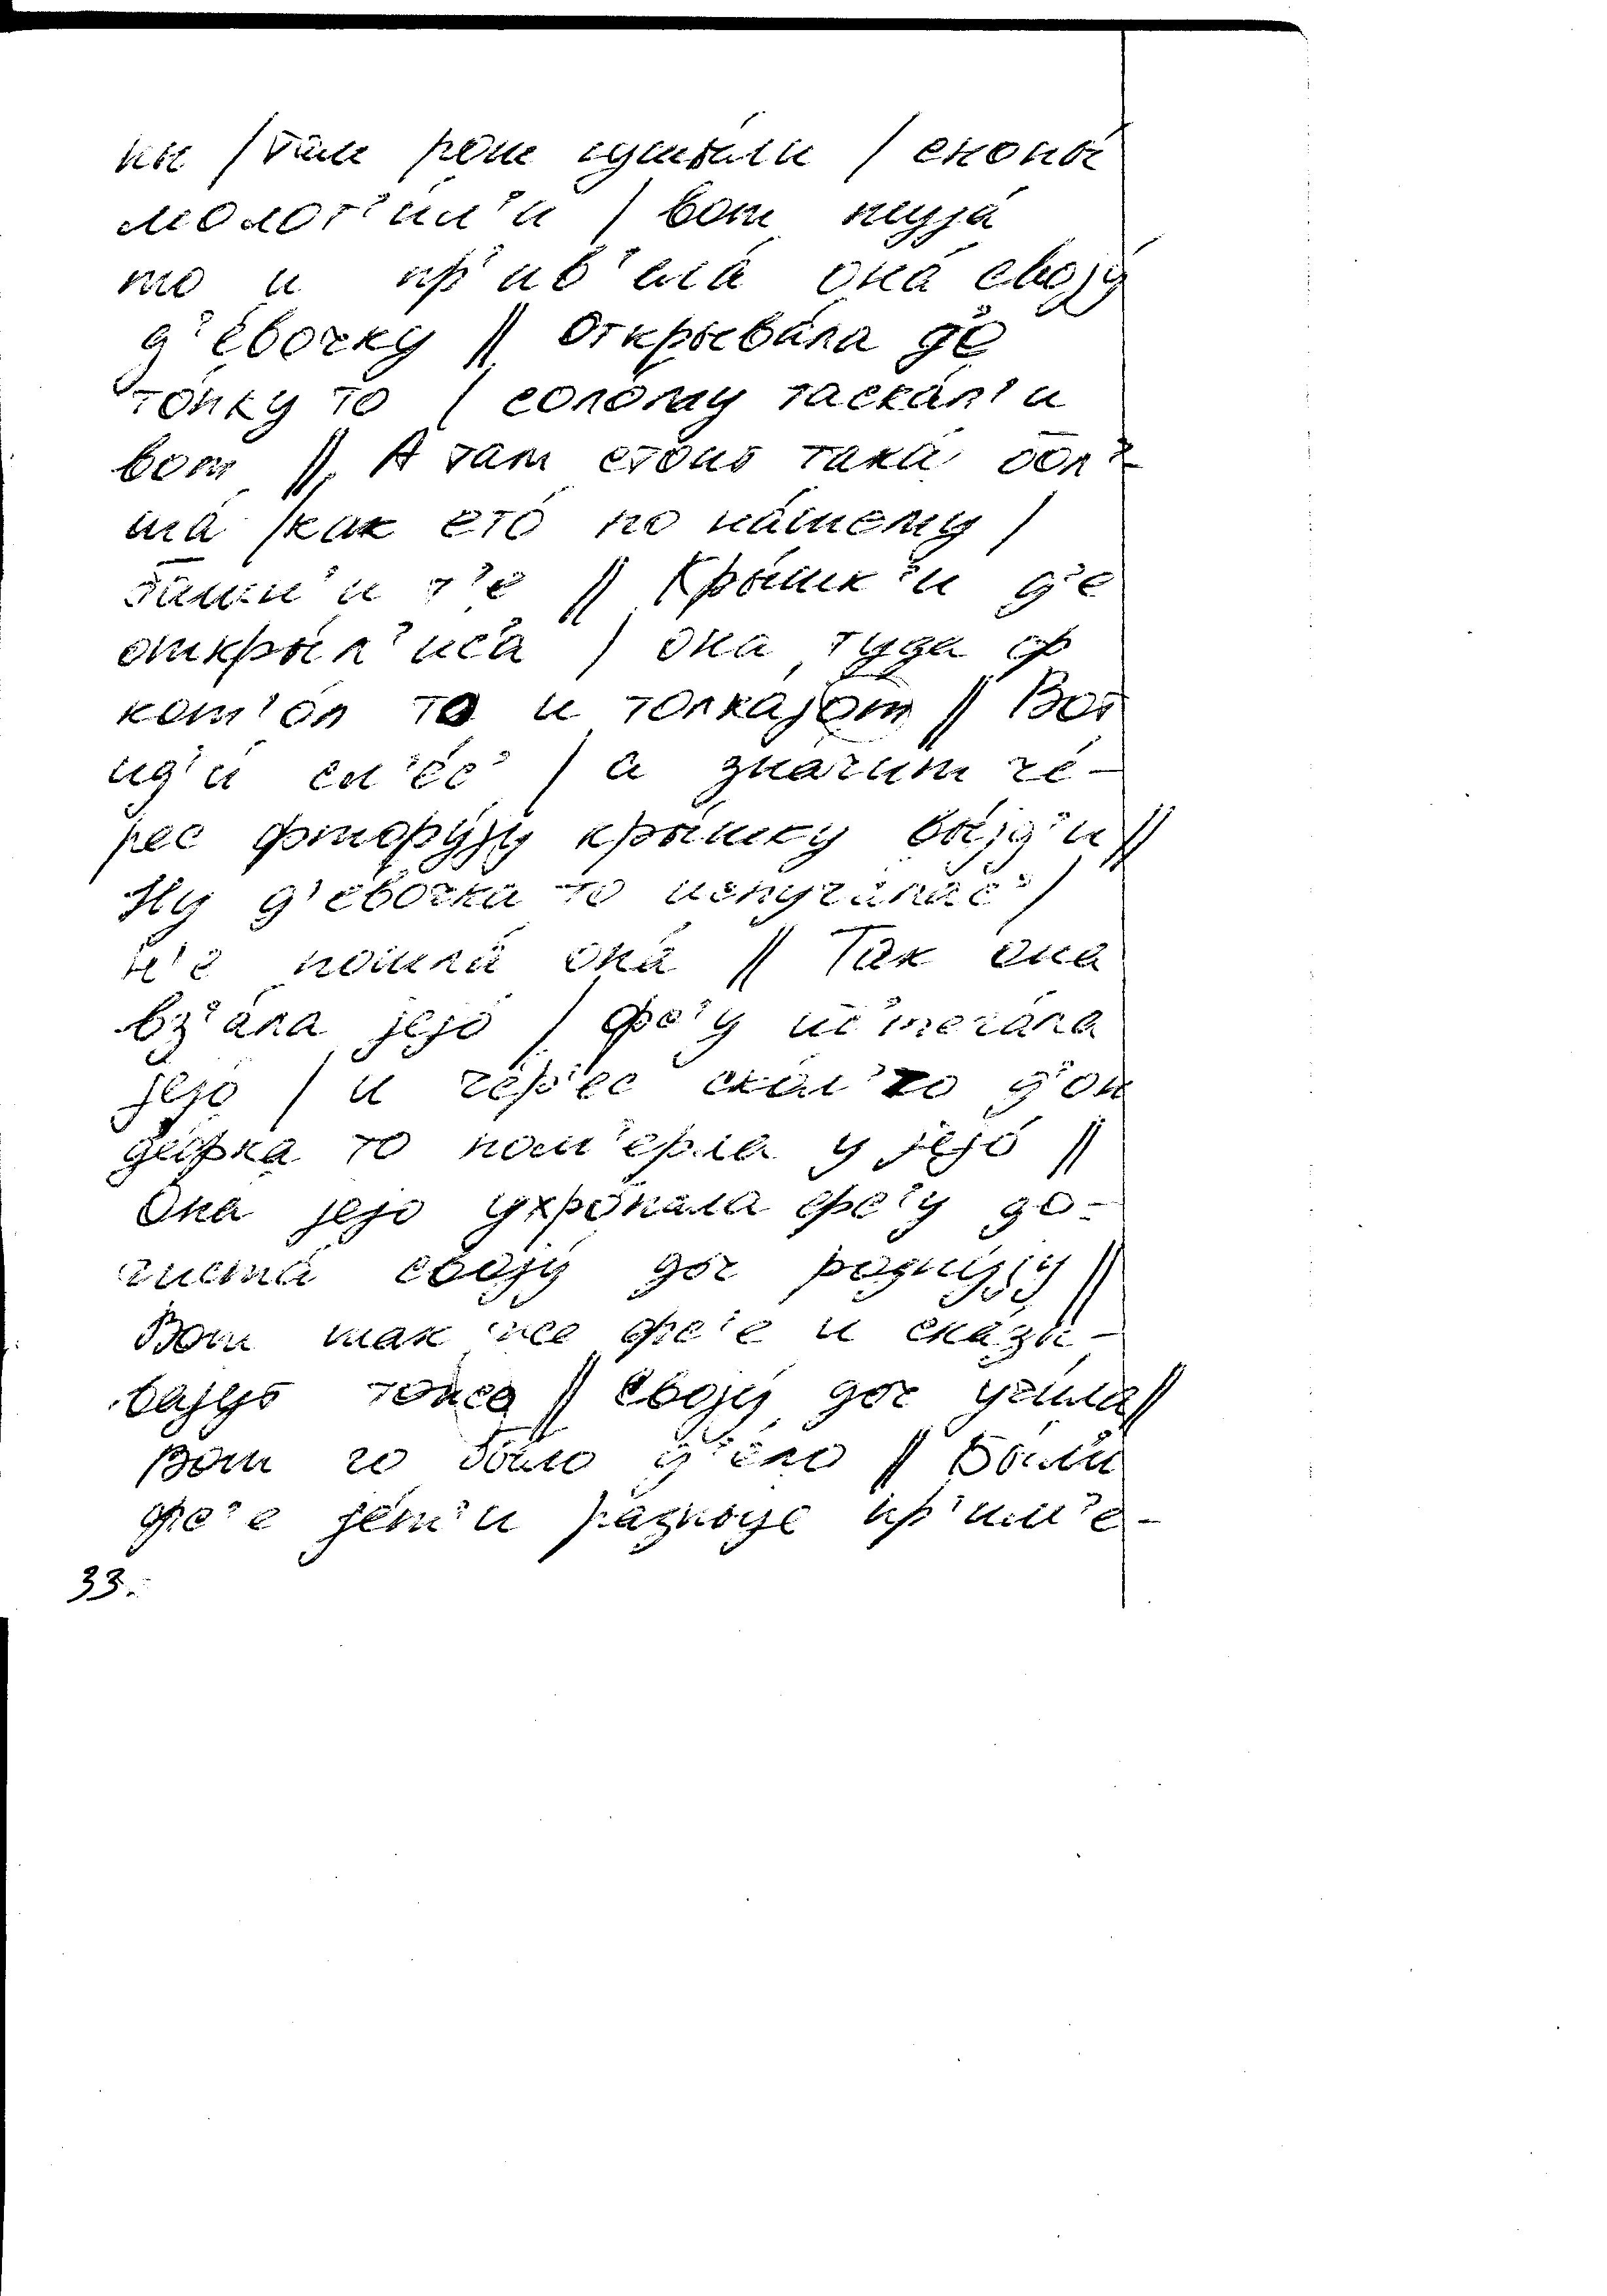 ны / там рош сушы́ли / снопы́
молот'и́л'и / вот туда́
то и пр'ив'ела́ она́ својý
д'е́вочку // Открыва́ла д'е
то́пку то / соло́му таска́л'и
вот // А там стоит така́ бол'-
ша́ / как ето́ по на́шему /
ба́шн'и т'е // Кры́шк'и д'е
откры́л'ис'а / она туда ф
кот'о́л то и толкаjот // Вот
ид'и́ сл'ес' / а зна́чит че́-
рес фторýjу кры́шку вы́jд'и //
Ну д'е́вочка то испуга́лас' /
н'е пошла́ она́ // Так она
вз'ала jејо́ / фс'у ис'т
jејо́ / и че́р'ес ско́л'ко д'он
де́фка то пом'ерла у jејо́ //
Она jејо ухро́пала фс'у до-
чиста́ својý доч роднýjу //
Вот так же фс'е и ска́зы-
ваjут то́жо // Својý доч учи́ла //
Вот чо бы́ло д'е́ло // Бы́ли
фс'е де́т'и разныје пр'им'е-
33.